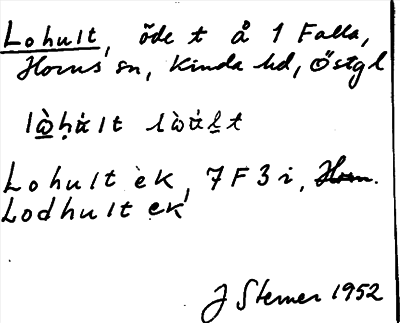 Lohult, öde t å 1 Falla,
Horns sn, Kinda hd, Östgl
Lohult ek, 7F3i, Horn.
Lodhult ek
J Sterner 1952